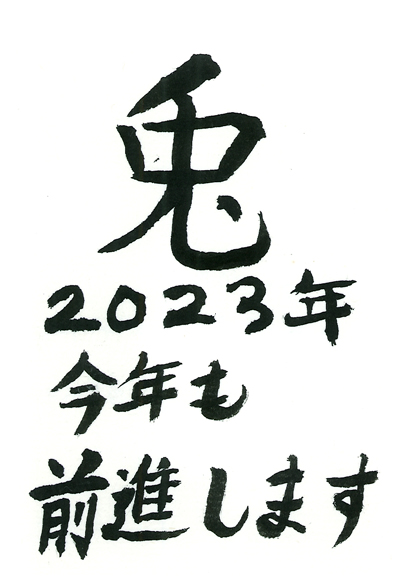 兎
2023年
今年も
前進します